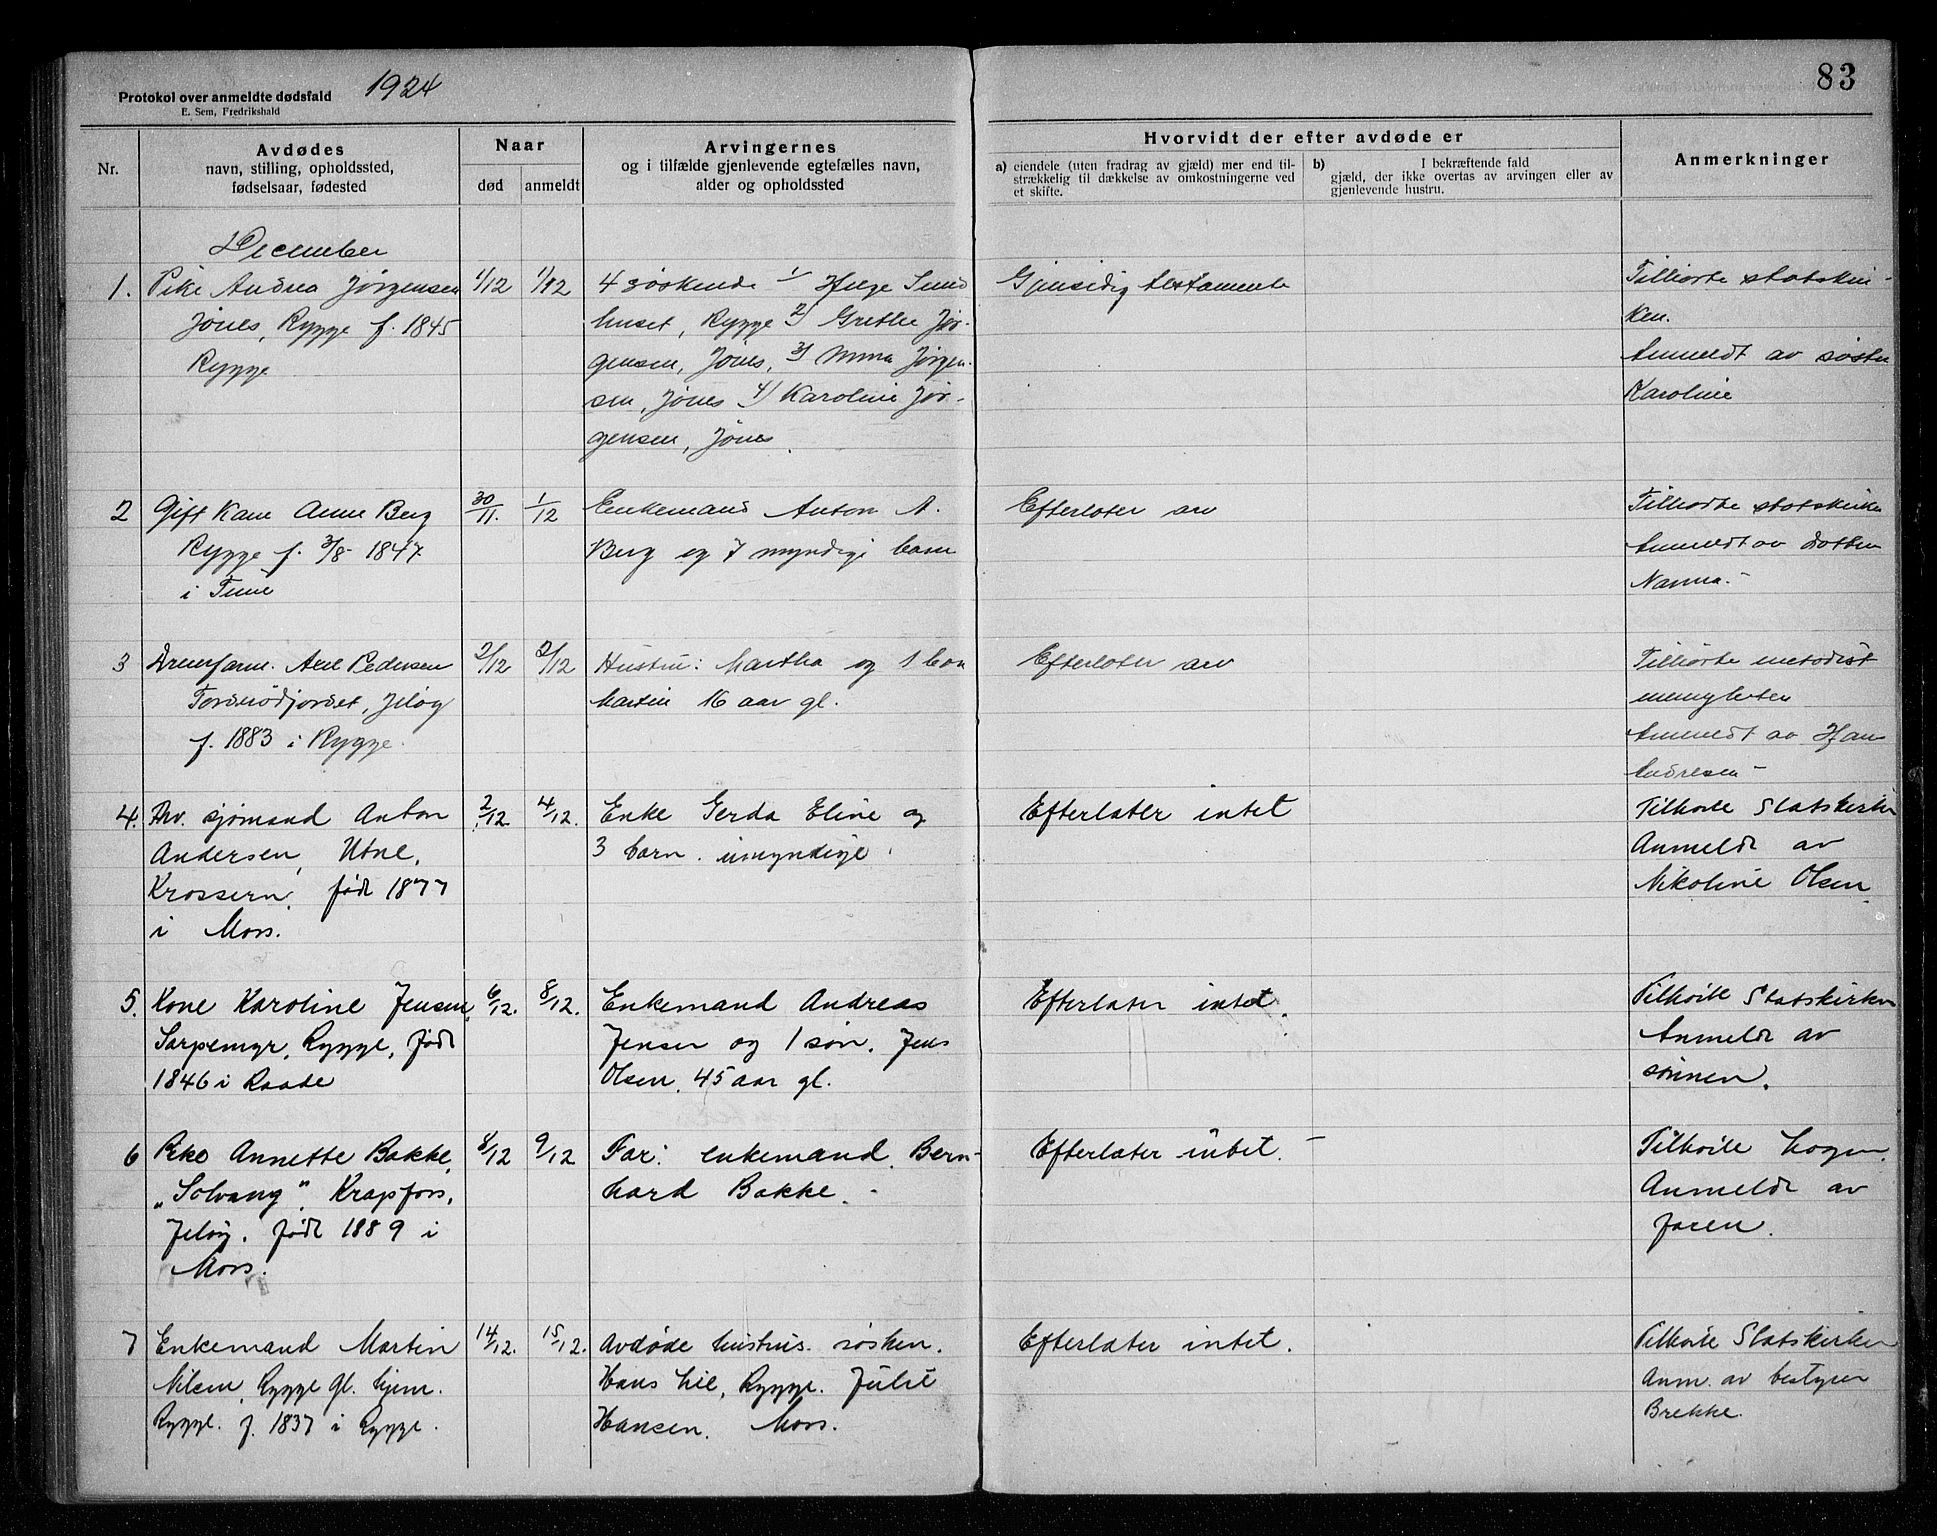 Protokol over anmeldte dødsfald
E. Sem, Fredrikshald
1924
83
Nr.
Avdødes
navn, stilling, opholdssted,
fødselsaar, fødested
Naar
død
anmeldt
Arvingernes
og i tilfælde gjenlevende egtefælles navn,
alder og opholdssted
Hvorvidt der efter avdøde er
a) eiendele (uten fradrag av gjæld) mer end til-
strækkelig til dækkelse av omkostningerne ved
et skifte.
b) I bekræftende fald
gjæld, der ikke overtas av arvingen eller av
gjenlevende hustru.
Anmerkninger
December
1. Pike Andrea Jørgensen
Jönes, Rygge f. 1845
Rygge
1/12
1/12
4 söskende 1/ Helge Sund
huset, Rygge 2/ Grethe Jör-
gensen, Jönes, 3/ Mina Jörgen-
sen, Jönes 4/ Karoline Jör-
gensen, Jönes.
Gjensidig testamente
Tilhörte statskir-
ken.
Anmeldt av söster
Karoline
2 Gift Kone Anne Berg
Rygge f. 3/8 1847
i Tune
30/11.
1/12
Enkemand Anton A.
Berg og 7 myndige barn
Efterlater arv
Tilhörte statskirken
Anmeldt av datten
Nanna.-
3 Drensarm. Axel Pedersen
Jeløy
f. 1883 i Rygge.
2/12
2/12
Hustru: Martha og 1 barn
Martin 16 aar gl.
Efterlater arv
Tilhörte metodist
menigheten
Anmeldt av Han
Andresen -
4. Arv. sjømand Anton
Andersen, Utne,
Krossern, født 1877
i Moss.
2/12
4/12.
Enke Gerda Eline og
3 barn. umyndige.
Efterlater intet
Tilhörte Statskirken
Anmeldt av
Nikoline Olsen.
5. Kone Karoline Jensen,
Sarpemyr, Rygge, født
1846 i Raade
6/12.
8/12.
Enkemand Andreas
Jensen og 1 søn. Jens
Olsen, 45 aar gl.
Efterlater intet.
Tilhörte Statskirken
Anmeldt av
sønnen.
6 Pike Annette Bakke,
„Solvang”, Krapfoss,
Jeløy. født 1889 i
Moss.
8/12
9/12
Far: enkemand Bern-
hard Bakke. -
Efterlater intet. -
Tilhörte Logen.
Anmeldt av
faren.
7 Enkemand Martin
Nilsen, Rygge gl. hjem.
Rygge. f. 1837 i Rygge.
14/12.
15/12.
Avdøde hustrus. søsken.
Hans Lie, Rygge. Julie
Hansen. Moss.
Efterlater intet.
Tilhörte Statskirken
Anm. av bestyrer
Brekke.